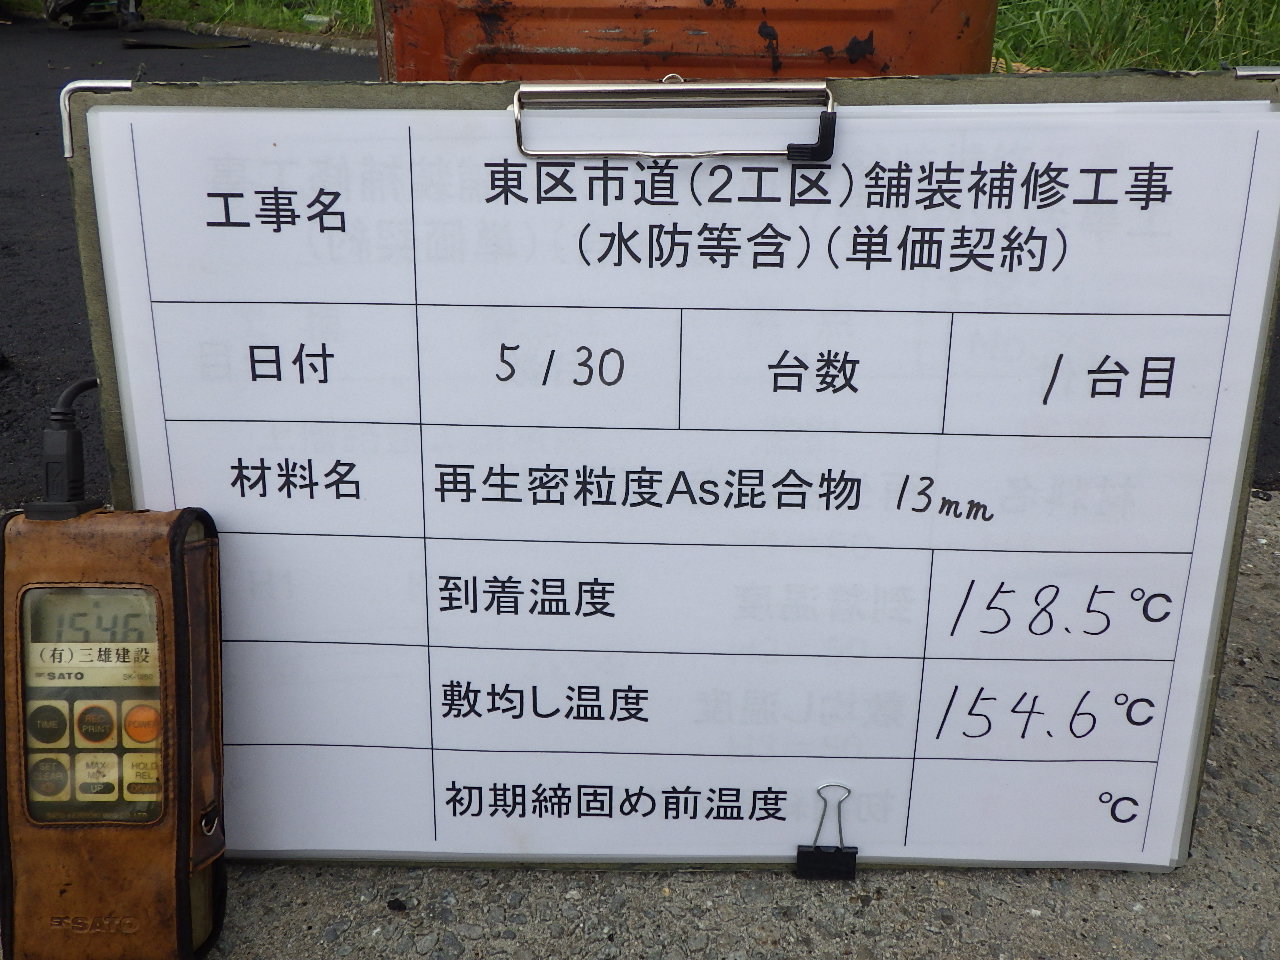 工事名
東区市道(2工区)舗装補修工事
(水防等含)(単価契約)
日付
5/30
台数
1台目
材料名
再生密粒度As混合物 13mm
到着温度
158.5℃
敷均し温度
154.6℃
初期締固め前温度
℃
154.6
(有)三雄建設
SATO
TIME
REC
PRINT
POWER
MAX
MIN
UP
HOLD
REL
SATO